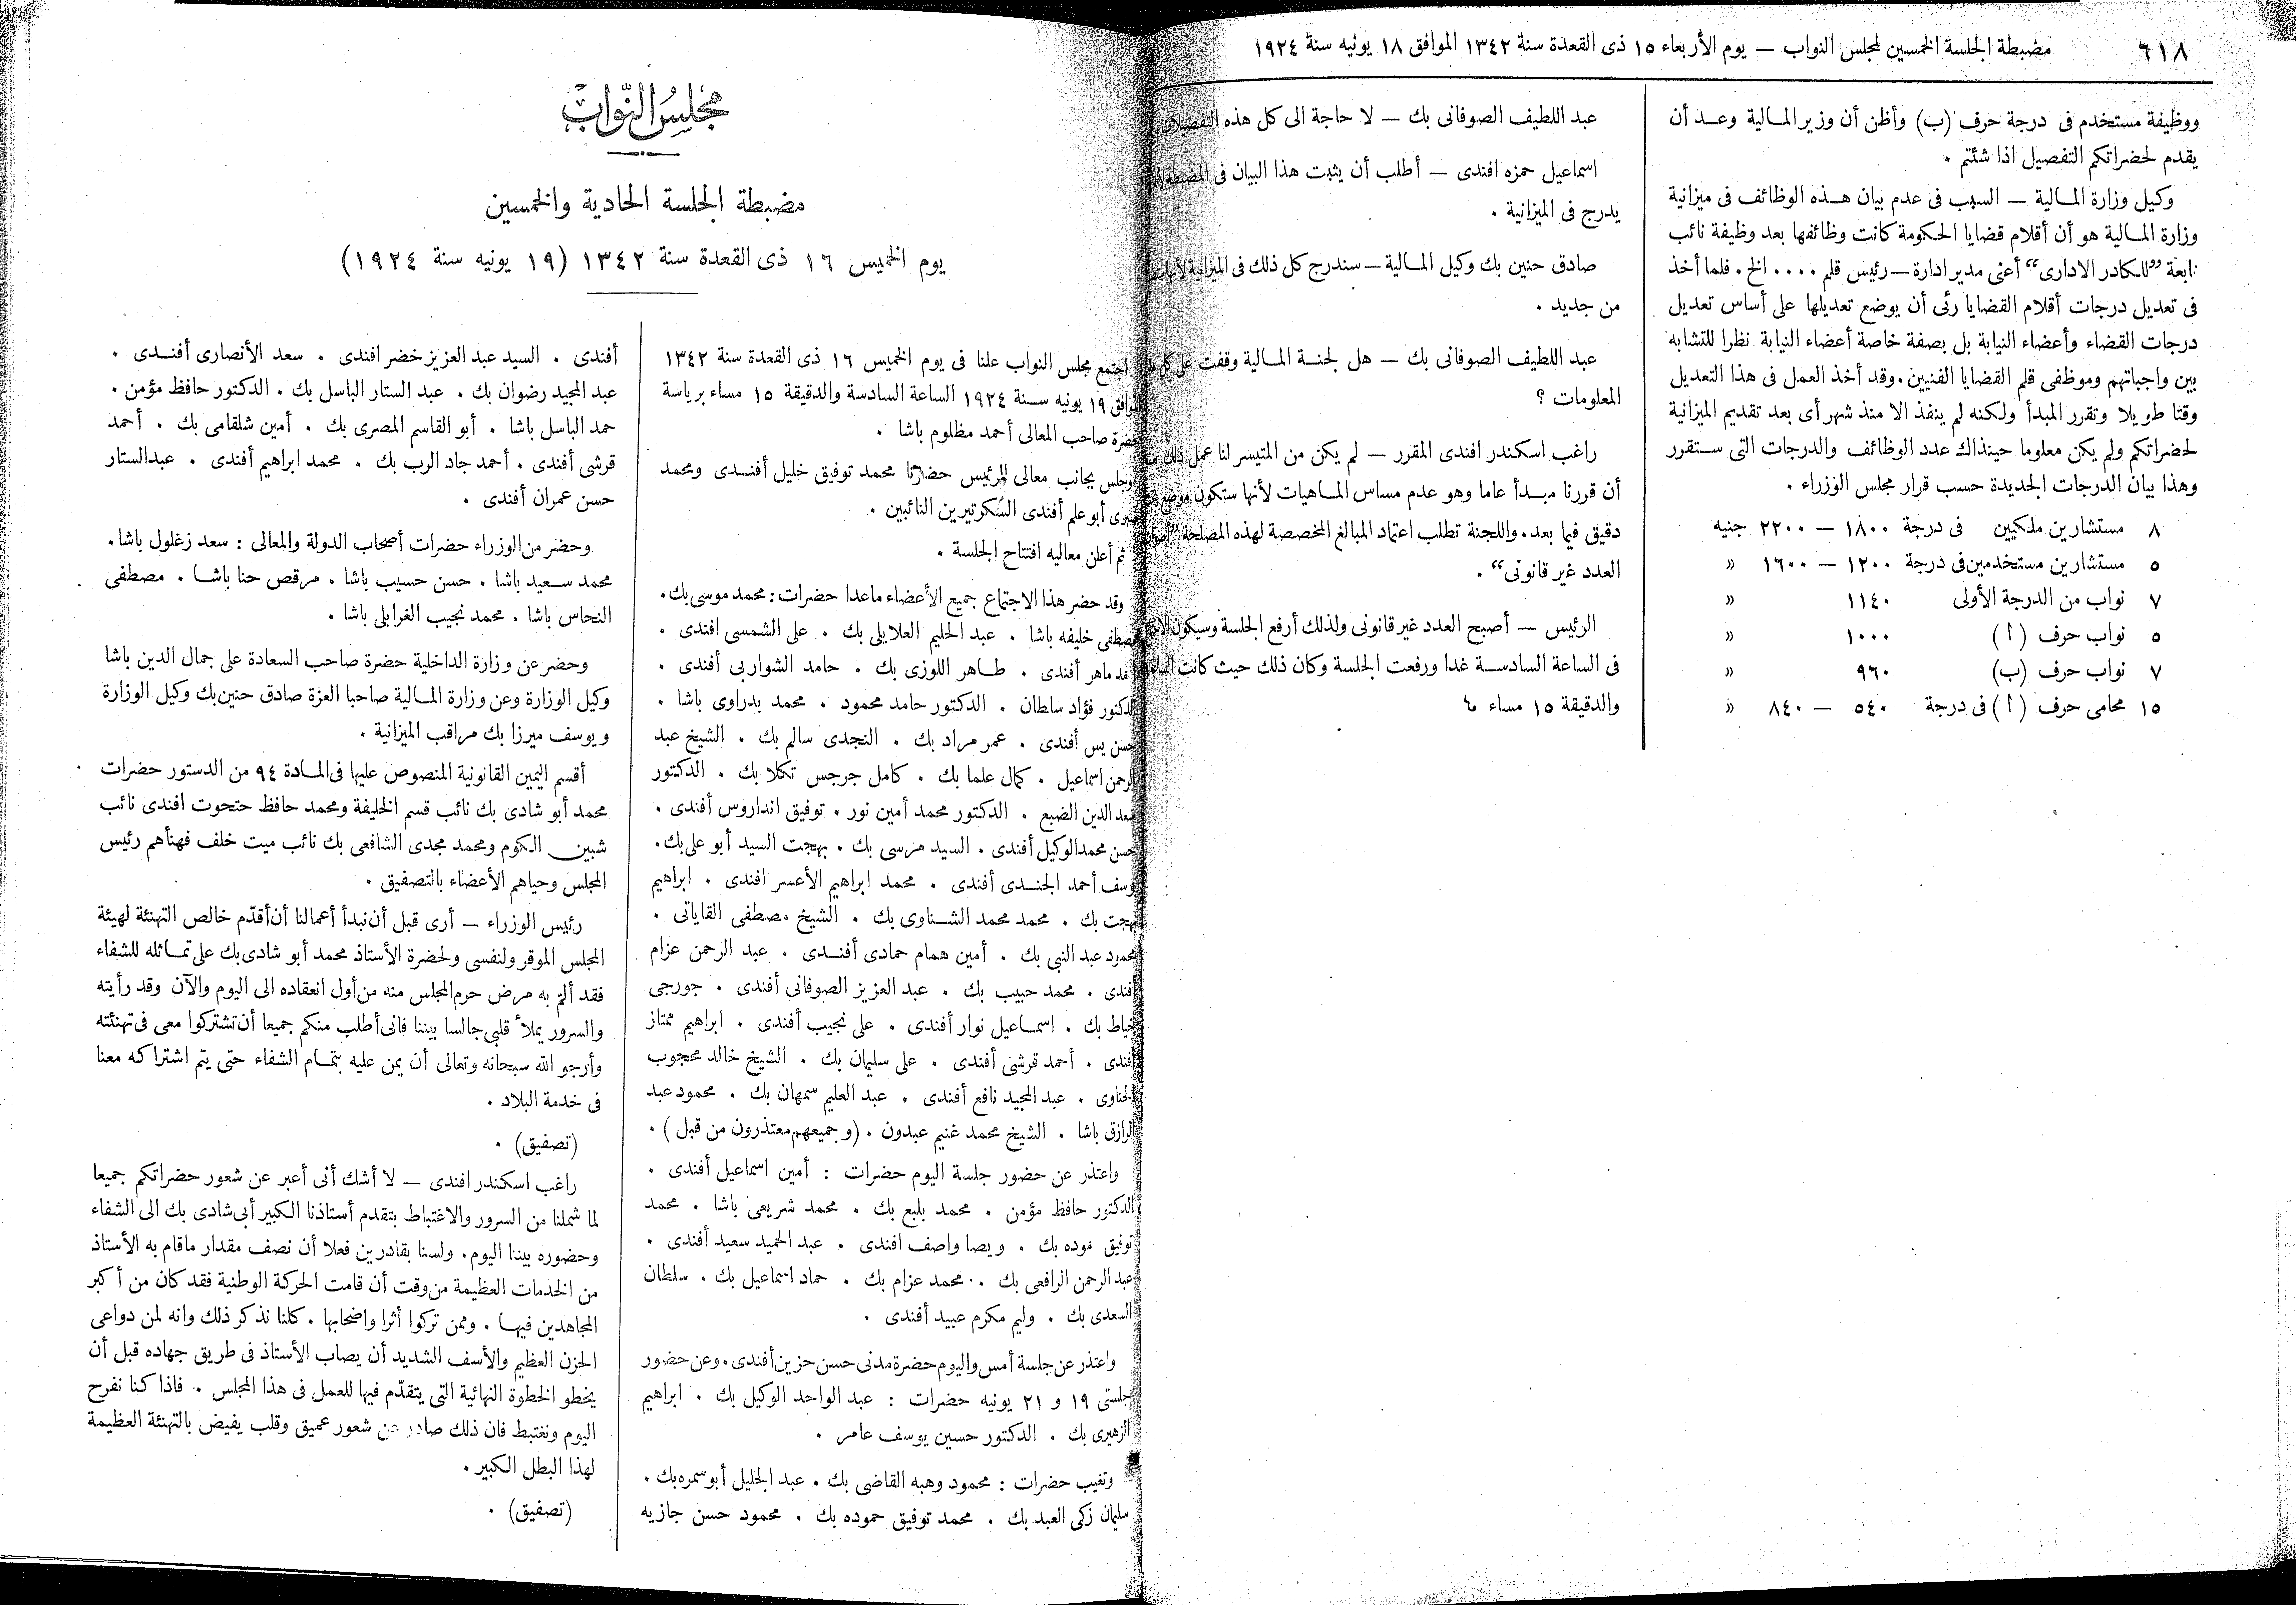 ٦١٨ مضبطة الجلسة الخمسين لمجلس النواب — يوم الأربعاء ١٥ ذى القعدة سنة ١٣٤٢ الموافق ١٨ يونيه سنة ١٩٢٤
ووظيفة مستخدم فى درجة حرف (ب) وأظن أن وزير المالية وعد أن
يقدم لحضراتكم التفصيل اذا شئتم .
وكيل وزارة المالية — السبب فى عدم بيان هذه الوظائف فى ميزانية
وزارة المالية هو أن أقلام قضايا الحكومة كانت وظائفها بعد وظيفة نائب
تابعة "للكادر الادارى" أعنى مدير ادارة — رئيس قلم .... الخ . فلما أخذ
فى تعديل درجات أقلام القضايا رئى أن يوضع تعديلها على أساس تعديل
درجات القضاء وأعضاء النيابة بل بصفة خاصة أعضاء النيابة نظرا للتشابه
بين واجباتهم وموظفى قلم القضايا الفنيين . وقد أخذ العمل فى هذا التعديل
وقتا طويلا وتقرر المبدأ ولكنه لم ينفذ الا منذ شهر أى بعد تقديم الميزانية
لحضراتكم ولم يكن معلوما حينذاك عدد الوظائف والدرجات التى ستقرر
وهذا بيان الدرجات الجديدة حسب قرار مجلس الوزراء .
٨ مستشارين ملكيين فى درجة ١٨٠٠ — ٢٢٠٠ جنيه
٥ مستشارين مستخدمين فى درجة ١٢٠٠ — ١٦٠٠ »
٧ نواب من الدرجة الأولى ١١٤٠ »
٥ نواب حرف (ا) ١٠٠٠ »
٧ نواب حرف (ب) ٩٦٠ »
١٥ محامى حرف (ا) فى درجة ٥٤٠ — ٨٤٠ »
عبد اللطيف الصوفانى بك — لا حاجة الى كل هذه التفصيلات .
اسماعيل حمزه افندى — أطلب أن يثبت هذا البيان فى المضبطه لأنه
يدرج فى الميزانية .
صادق حنين بك وكيل المالية — سندرج كل ذلك فى الميزانية لأنها ستطبع
من جديد .
عبد اللطيف الصوفانى بك — هل لجنة المالية وقفت على كل هذه
المعلومات ؟
راغب اسكندر افندى المقرر — لم يكن من المتيسر لنا عمل ذلك بعد
أن قررنا مبدأ عاما وهو عدم مساس الماهيات لأنها ستكون موضع بحث
دقيق فيما بعد . واللجنة تطلب اعتماد المبالغ المخصصة لهذه المصلحة "أصوات
العدد غير قانونى" .
الرئيس — أصبح العدد غير قانونى ولذلك أرفع الجلسة وسيكون الاجتماع
فى الساعة السادسة غدا ورفعت الجلسة وكان ذلك حيث كانت الساعة
والدقيقة ١٥ مساء ؟
مجلس النواب
مضبطة الجلسة الحادية والخمسين
يوم الخميس ١٦ ذى القعدة سنة ١٣٤٢ (١٩ يونيه سنة ١٩٢٤)
اجتمع مجلس النواب علنا فى يوم الخميس ١٦ ذى القعدة سنة ١٣٤٢
الموافق ١٩ يونيه سنة ١٩٢٤ الساعة السادسة والدقيقة ١٥ مساء برياسة
حضرة صاحب المعالى أحمد مظلوم باشا .
وجلس بجانب معالى الرئيس حضرتا محمد توفيق خليل أفندى ومحمد
صبرى أبو علم أفندى السكرتيرين النائبين .
ثم أعلن معاليه افتتاح الجلسة .
وقد حضر هذا الاجتماع جميع الأعضاء ماعدا حضرات : محمد موسى بك .
مصطفى خليفه باشا . عبد الحليم العلايلى بك . على الشمسى افندى .
أحمد ماهر أفندى . طاهر اللوزى بك . حامد الشواربى أفندى .
الدكتور فؤاد سلطان . الدكتور حامد محمود . محمد بدراوى باشا .
حسن يس أفندى . عمر مراد بك . النجدى سالم بك . الشيخ عبد
الرحمن اسماعيل . كمال علما بك . كامل جرجس تكلا بك . الدكتور
سعد الدين الضبع . الدكتور محمد أمين نور . توفيق اندراوس أفندى .
حسن محمد الوكيل أفندى . السيد مرسى بك . بهجت السيد أبو على بك .
يوسف أحمد الجندى أفندى . محمد ابراهيم الأعسر افندى . ابراهيم
بهجت بك . محمد محمد الشناوى بك . الشيخ مصطفى القاياتى .
محمود عبد النبى بك . أمين همام حمادى أفندى . عبد الرحمن عزام
أفندى . محمد حبيب بك . عبد العزيز الصوفانى أفندى . جورجى
خياط بك . اسماعيل نوار أفندى . على نجيب أفندى . ابراهيم ممتاز
أفندى . أحمد قرشى أفندى . على سليمان بك . الشيخ خالد محجوب
الحناوى . عبد المجيد نافع أفندى . عبد العليم سمهان بك . محمود عبد
الرازق باشا . الشيخ محمد غنيم عبدون . (وجميعهم معتذرون من قبل) .
واعتذر عن حضور جلسة اليوم حضرات : أمين اسماعيل أفندى .
الدكتور حافظ مؤمن . محمد بلبع بك . محمد شريعى باشا . محمد
توفيق فوده بك . ويصا واصف افندى . عبد الحميد سعيد أفندى .
عبد الرحمن الرافعى بك . محمد عزام بك . حماد اسماعيل بك . سلطان
السعدى بك . وليم مكرم عبيد أفندى .
واعتذر عن جلسة أمس واليوم حضرة مدنى حسن حزين أفندى . وعن حضور
جلستى ١٩ و ٢١ يونيه حضرات : عبد الواحد الوكيل بك . ابراهيم
الزهيرى بك . الدكتور حسين يوسف عامر .
وتغيب حضرات : محمود وهبه القاضى بك . عبد الجليل أبو سمره بك .
سليمان زكى العبد بك . محمد توفيق حموده بك . محمود حسن جازيه
أفندى . السيد عبد العزيز خضر افندى . سعد الأنصارى أفندى .
عبد المجيد رضوان بك . عبد الستار الباسل بك . الدكتور حافظ مؤمن .
حمد الباسل باشا . أبو القاسم المصرى بك . أمين شلقامى بك . أحمد
قرشى أفندى . أحمد جاد الرب بك . محمد ابراهيم أفندى . عبد الستار
حسن عمران أفندى .
وحضر من الوزراء حضرات أصحاب الدولة والمعالى : سعد زغلول باشا .
محمد سعيد باشا . حسن حسيب باشا . مرقص حنا باشا . مصطفى
النحاس باشا . محمد نجيب الغرابلى باشا .
وحضر عن وزارة الداخلية حضرة صاحب السعادة على جمال الدين باشا
وكيل الوزارة وعن وزارة المالية صاحبا العزة صادق حنين بك وكيل الوزارة
ويوسف ميرزا بك مراقب الميزانية .
أقسم اليمين القانونية المنصوص عليها فى المادة ٩٤ من الدستور حضرات
محمد أبو شادى بك نائب قسم الخليفة ومحمد حافظ حتحوت افندى نائب
شبين الكوم ومحمد مجدى الشافعى بك نائب ميت خلف فهنأهم رئيس
المجلس وحياهم الأعضاء بالتصفيق .
رئيس الوزراء — أرى قبل أن نبدأ أعمالنا أن أقدّم خالص التهنئة لهيئة
المجلس الموقر ولنفسى ولحضرة الأستاذ محمد أبو شادى بك على تماثله للشفاء
فقد ألمّ به مرض حرم المجلس منه من أول انعقاده الى اليوم والآن وقد رأيته
والسرور يملأ قلبى جالسا بيننا فانى أطلب منكم جميعا أن تشتركوا معى فى تهنئته
وأرجو الله سبحانه وتعالى أن يمن عليه بتمام الشفاء حتى يتم اشتراكه معنا
فى خدمة البلاد .
(تصفيق) .
راغب اسكندر افندى — لا أشك أنى أعبر عن شعور حضراتكم جميعا
لما شملنا من السرور والاغتباط بتقدم أستاذنا الكبير أبى شادى بك الى الشفاء
وحضوره بيننا اليوم . ولسنا بقادرين فعلا أن نصف مقدار ماقام به الأستاذ
من الخدمات العظيمة من وقت أن قامت الحركة الوطنية فقد كان من أكبر
المجاهدين فيها . وممن تركوا أثرا واضحا بها . كلنا نذكر ذلك وانه لمن دواعى
الحزن العظيم والأسف الشديد أن يصاب الأستاذ فى طريق جهاده قبل أن
يخطو الخطوة النهائية التى يتقدّم فيها للعمل فى هذا المجلس . فاذا كنا نفرح
اليوم ونغتبط فان ذلك صادر عن شعور عميق وقلب يفيض بالتهنئة العظيمة
لهذا البطل الكبير .
(تصفيق) .